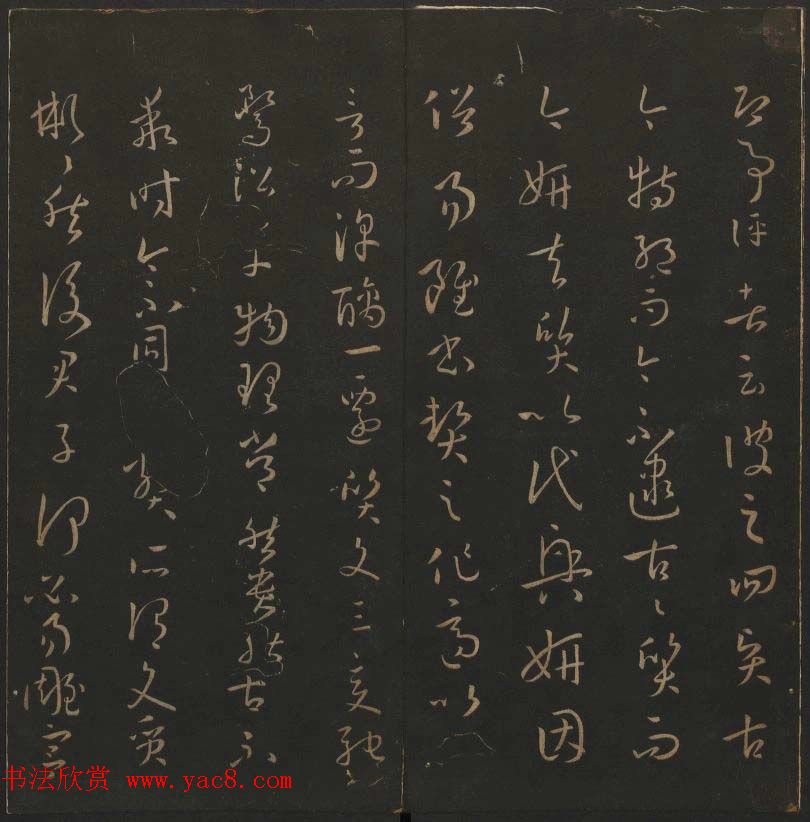 即事評者云彼之四賢古
今特絕而今不逮古〻質而
今妍夫質以代興妍因
俗易雖書契之作適以
言而淳醨一遷質文三變馳
騖沿革物理常然貴能古不
乖時今不同弊所謂文質
彬〻然後君子何必易雕宮
书法欣赏 www.yac8.com